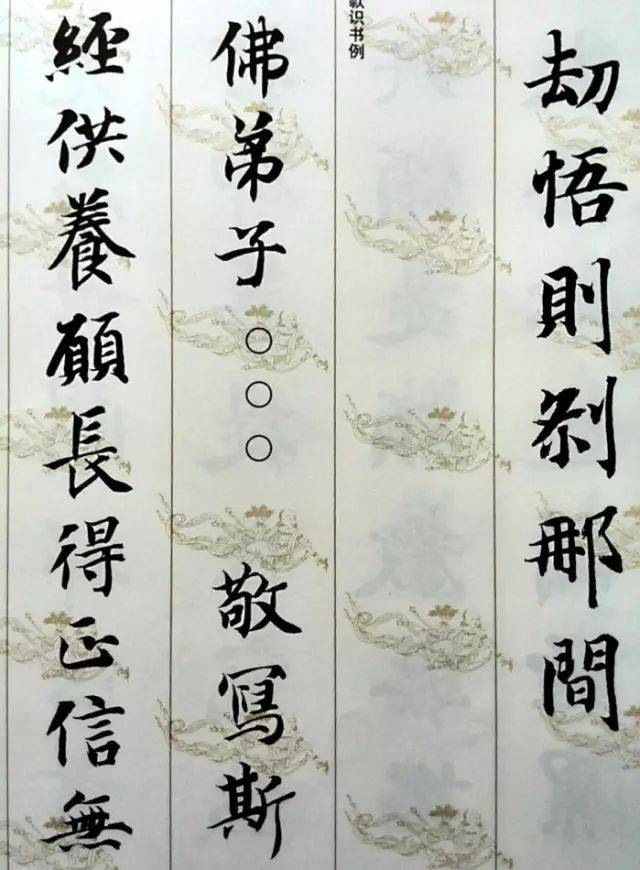 劫悟則剎那間
款识书例
佛弟子○○○敬寫斯
經供養願長得正信無